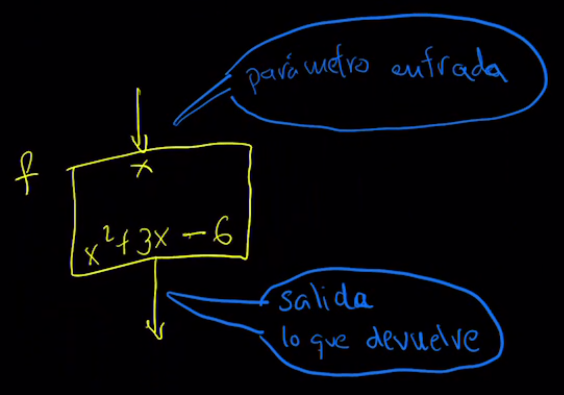 parámetro entrada
f
x
x²+3x-6
salida
lo que devuelve